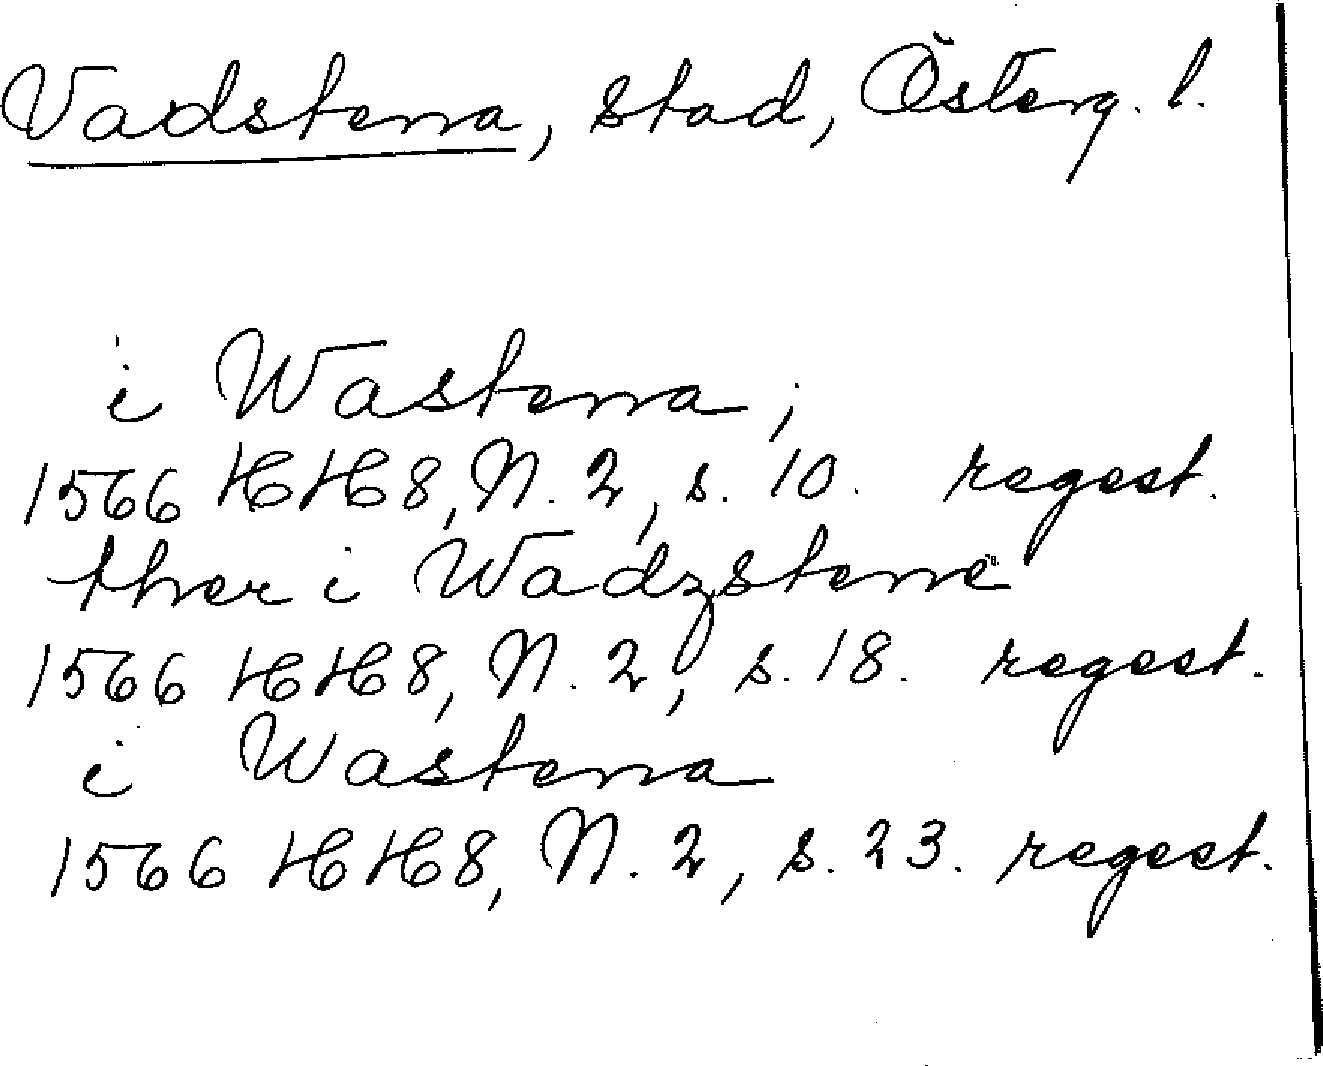 Vadstena, stad, Österg. l.
i Wastena,
1566 HH8, N. 2, s. 10. regest.
ther i Wadzstene
1566 HH8, N. 2, s. 18. regest.
i Wastena
1566 HH8, N. 2, s. 23. regest.